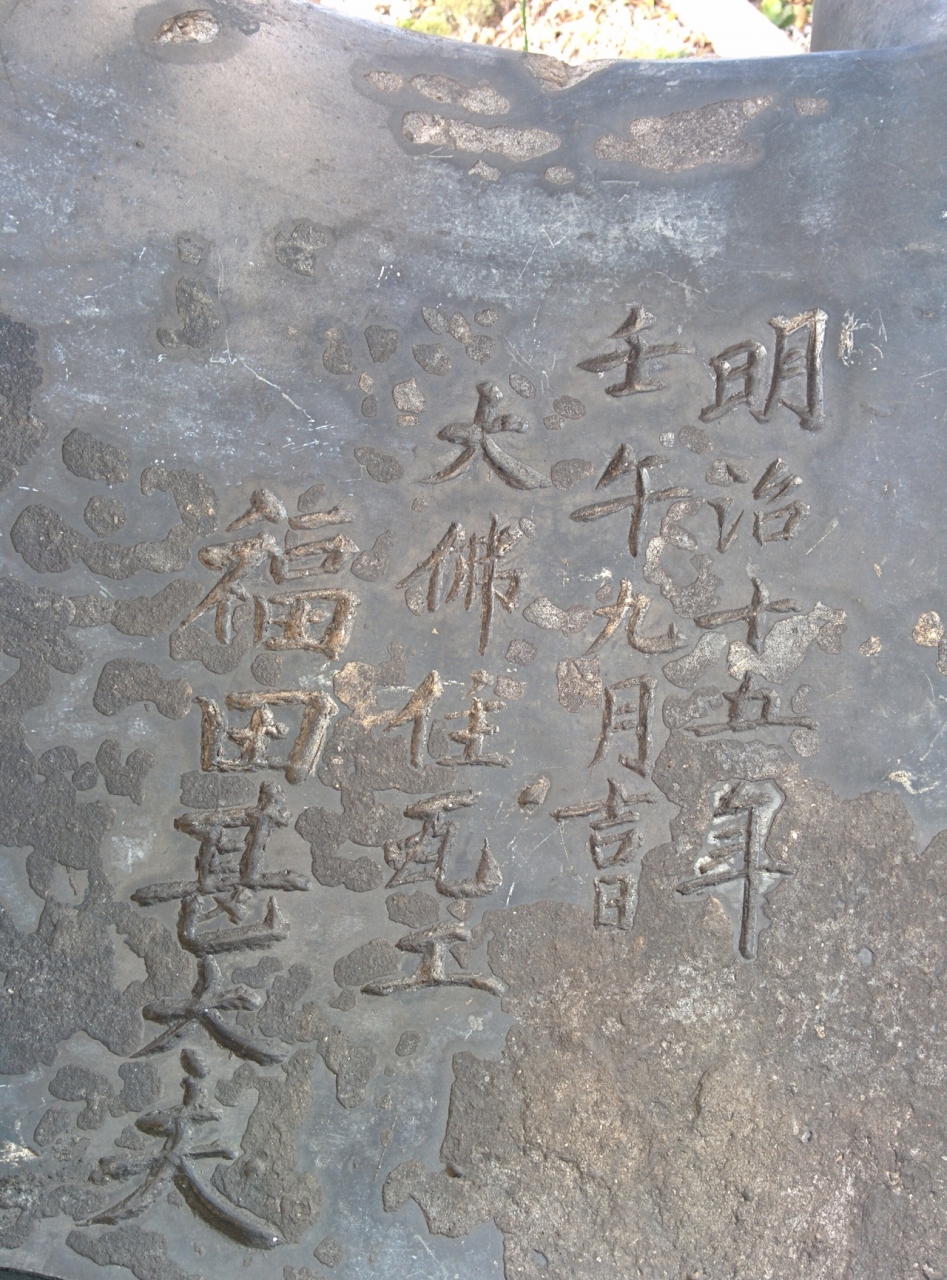 明治十五年
壬午九月吉日
大佛住瓦工
福田甚大夫